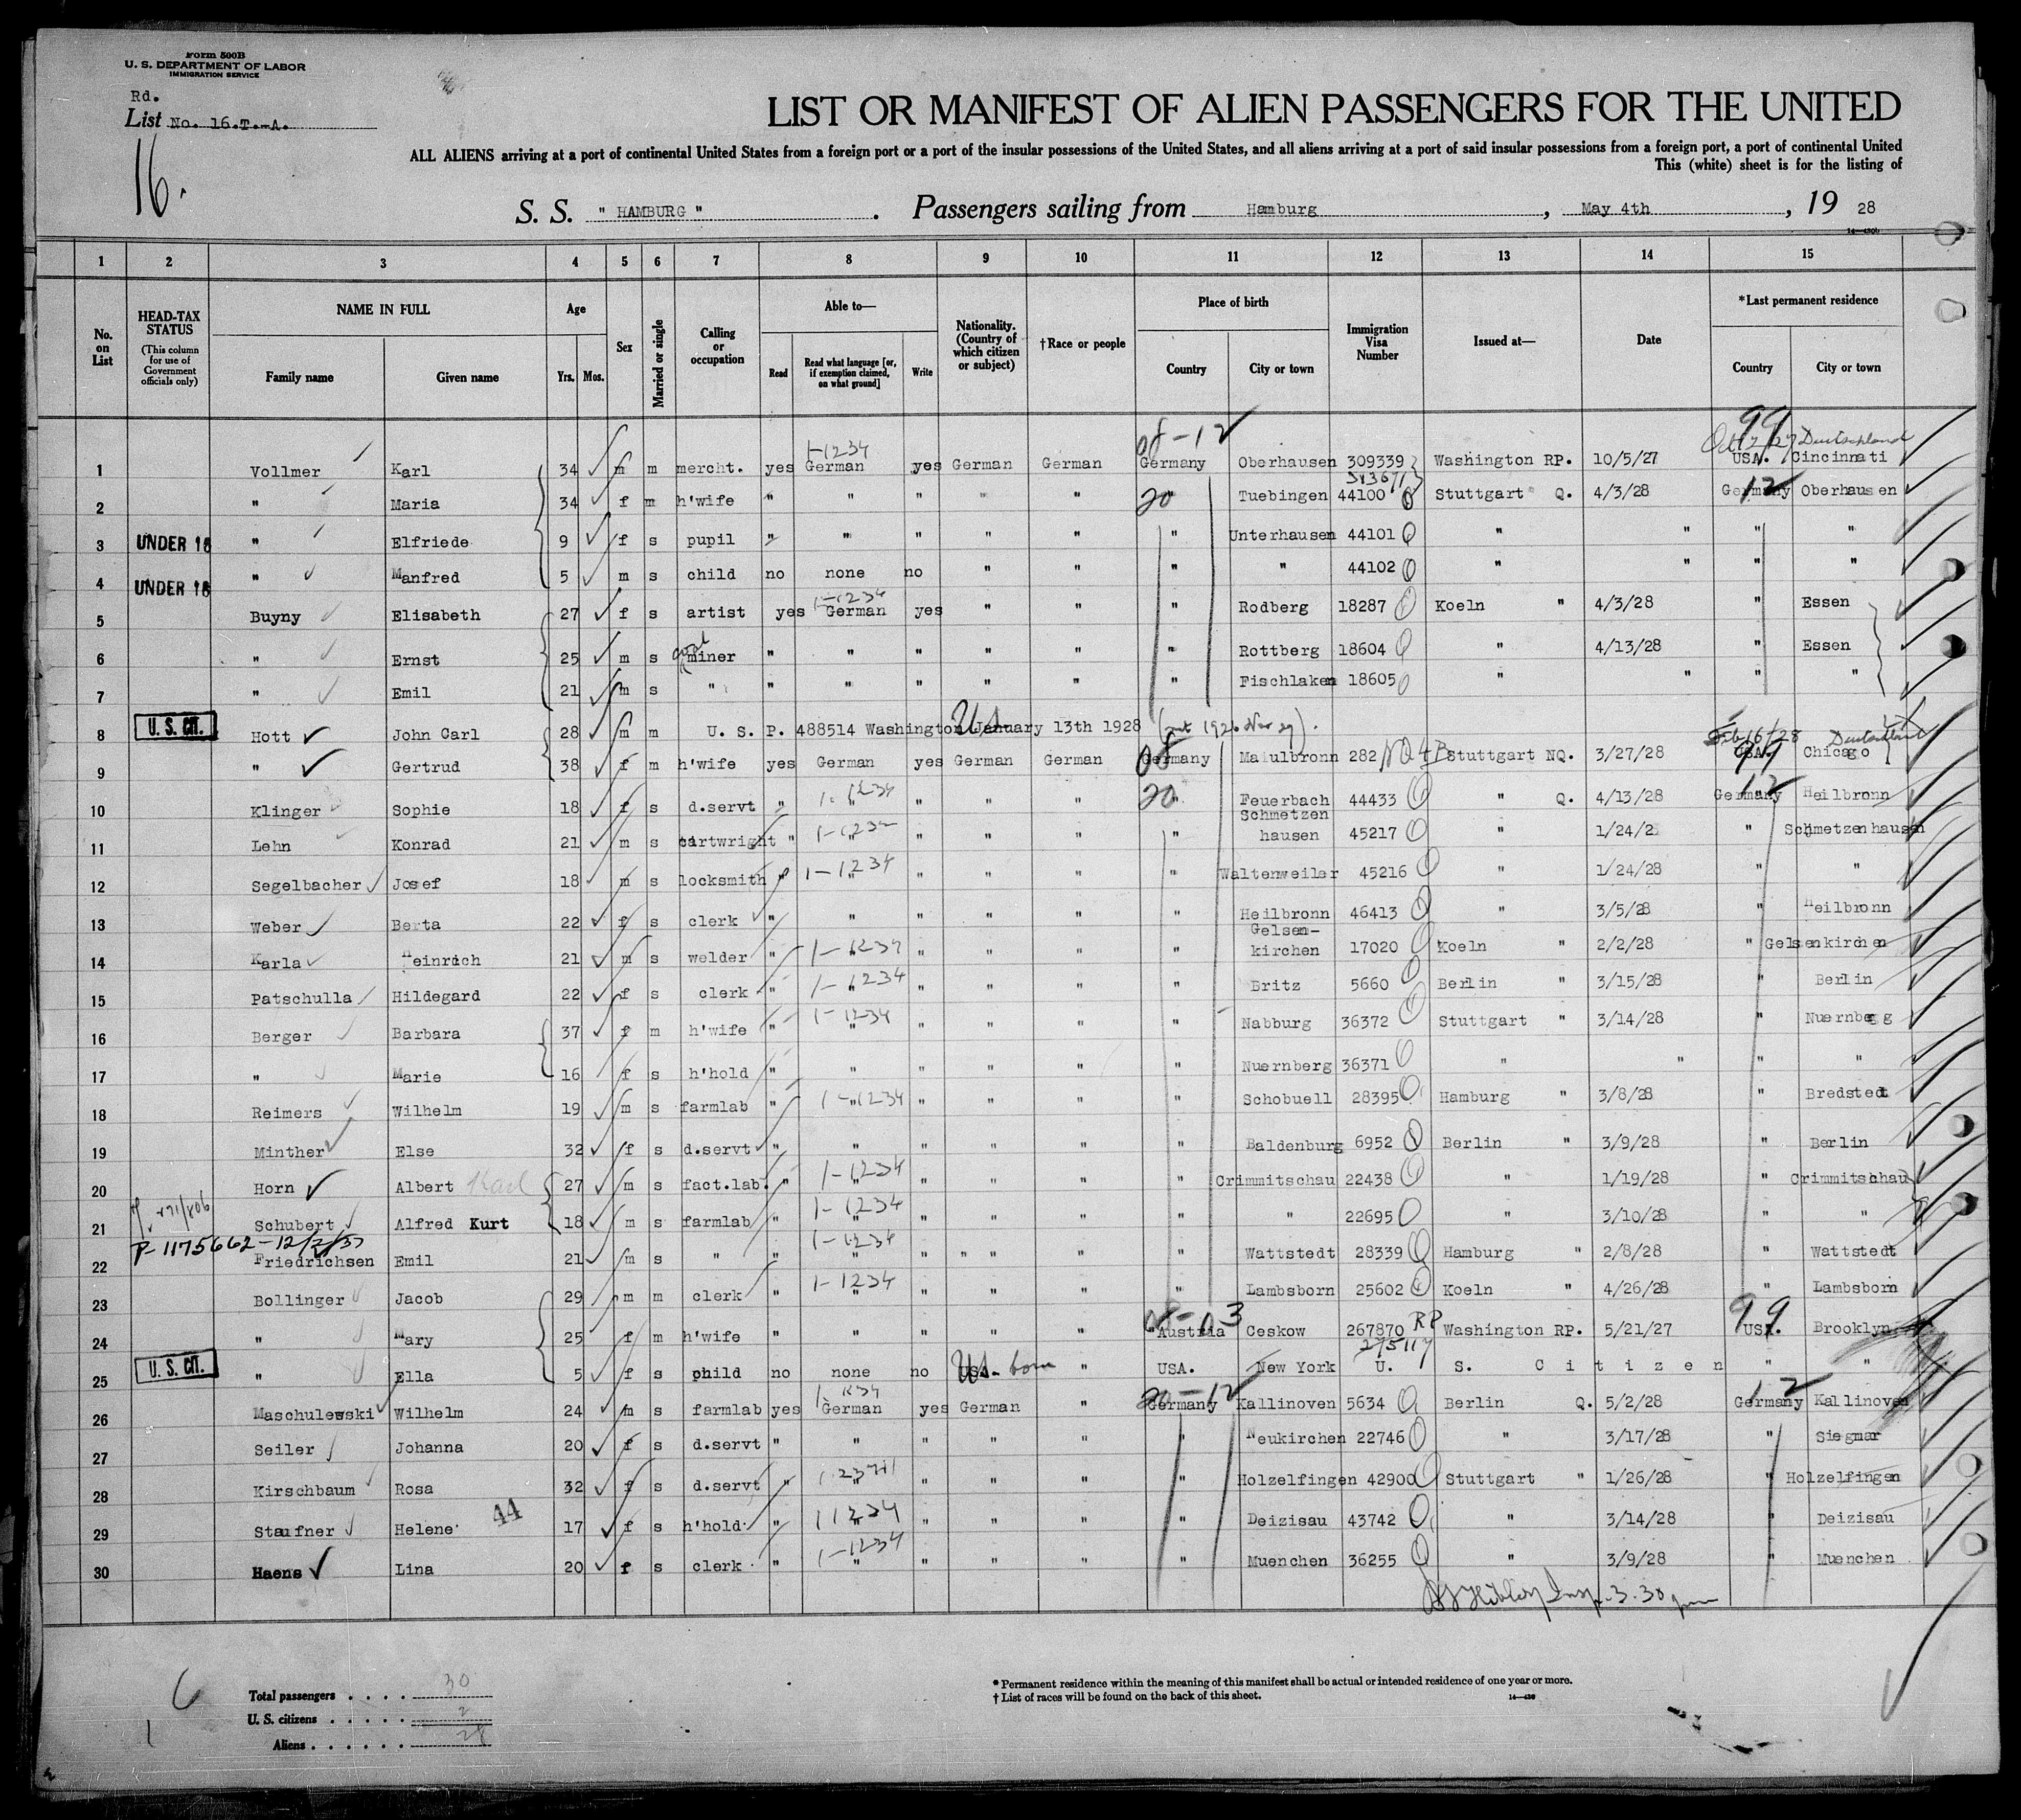 Form 500B
U. S. DEPARTMENT OF LABOR
IMMIGRATION SERVICE
Rd.
List No. 16.T.-A.
16.
LIST OR MANIFEST OF ALIEN PASSENGERS FOR THE UNITED
ALL ALIENS arriving at a port of continental United States from a foreign port or a port of the insular possessions of the United States, and all aliens arriving at a port of said insular possessions from a foreign port, a port of continental United
This (white) sheet is for the listing of
S. S. " HAMBURG " . Passengers sailing from Hamburg , May 4th , 19 28
14—430b
1 2 3 4 5 6 7 8 9 10 11 12 13 14 15
No. on List
HEAD-TAX STATUS (This column for use of Government officials only)
NAME IN FULL Family name Given name
Age Yrs. Mos.
Sex
Married or single
Calling or occupation
Able to— Read Read what language [or, if exemption claimed, on what ground] Write
Nationality. (Country of which citizen or subject)
†Race or people
Place of birth Country City or town
Immigration Visa Number
Issued at—
Date
*Last permanent residence Country City or town
08-12 99
1-1234 Oct 12/27 Deutschland
1 Vollmer Karl 34 m m mercht. yes German yes German German Germany Oberhausen 309339 Washington RP. 10/5/27 USA. Cincinnati
313671
2 " Maria 34 f m h'wife " " " " " 20 Tuebingen 44100 Stuttgart Q. 4/3/28 Germany 12 Oberhausen
3 UNDER 16 " Elfriede 9 f s pupil " " " " " " Unterhausen 44101 " " " "
4 UNDER 16 " Manfred 5 m s child no none no " " " " 44102 " " " "
1-1234
5 Buyny Elisabeth 27 f s artist yes German yes " " " Rodberg 18287 Koeln " 4/3/28 " Essen
6 " Ernst 25 m s coal miner " " " " " " Rottberg 18604 " 4/13/28 " Essen
7 " Emil 21 m s " " " " " " " Fischlaken 18605 " " " "
8 U. S. CIT. Hott John Carl 28 m m U. S. P. 488514 Washington January 13th 1928 US (out 1926 Nov 29). Feb 16/28 Deutschland
9 " Gertrud 38 f m h'wife yes German yes German German 08 Germany Maulbronn 282 NQ 4B Stuttgart NQ. 3/27/28 USA. 99 Chicago
10 Klinger Sophie 18 f s d.servt " 1-1234 " " " " 20 Feuerbach 44433 " Q. 4/13/28 Germany 12 Heilbronn
11 Lehn Konrad 21 m s cartwright " 1-1234 " " " " " Schmetzen hausen 45217 " 1/24/2 " Schmetzenhausen
12 Segelbacher Josef 18 m s locksmith " 1-1234 " " " " " Waltenweiler 45216 " 1/24/28 " "
13 Weber Berta 22 f s clerk " " " " " " Heilbronn 46413 " 3/5/28 " Heilbronn
14 Karla Heinrich 21 m s welder " 1-1234 " " " " " Gelsen- kirchen 17020 Koeln " 2/2/28 " Gelsenkirchen
15 Patschulla Hildegard 22 f s clerk " 1-1234 " " " " " Britz 5660 Berlin " 3/15/28 " Berlin
16 Berger Barbara 37 f m h'wife " 1-1234 " " " " " Nabburg 36372 Stuttgart " 3/14/28 " Nuernberg
17 " Marie 16 f s h'hold " " " " " " Nuernberg 36371 " " " "
18 Reimers Wilhelm 19 m s farmlab " 1-1234 " " " " " Schobuell 28395 Hamburg " 3/8/28 " Bredstedt
19 Minther Else 32 f s d.servt " " " " " " Baldenburg 6952 Berlin " 3/9/28 " Berlin
20 Horn Albert Karl 27 m s fact.lab. " 1-1234 " " " " " Crimmitschau 22438 " 1/19/28 " Crimmitschau
21 Schubert Alfred Kurt 18 m s farmlab " 1-1234 " " " " " " 22695 " 3/10/28 " "
P-1175662-12/2/37
22 Friedrichsen Emil 21 m s " " 1-1234 " " " " " " Wattstedt 28339 Hamburg " 2/8/28 " Wattstedt
23 Bollinger Jacob 29 m m clerk " 1-1234 " " " " " Lambsborn 25602 Koeln " 4/26/28 " Lambsborn
24 " Mary 25 f m h'wife " " " " " Austria Ceskow 267870 RP Washington RP. 5/21/27 USA. 99 Brooklyn
275117
25 U. S. CIT. " Ella 5 f s child no none no USA. US- born " USA. New York U. S. Citizen " "
26 Maschulewski Wilhelm 24 m s farmlab yes 1-1234 German yes German " 20-12 Germany Kallinoven 5634 Berlin Q. 5/2/28 Germany 12 Kallinoven
27 Seiler Johanna 20 f s d.servt " " " " " " Neukirchen 22746 " 3/17/28 " Siegmar
28 Kirschbaum Rosa 32 f s d.servt " " " " " " Holzelfingen 42900 Stuttgart " 1/26/28 " Holzelfingen
29 Staufner Helene 44 17 f s h'hold " 1 1234 " " " " " Deizisau 43742 " 3/14/28 " Deizisau
30 Haens Lina 20 f s clerk " 1-1234 " " " " " Muenchen 36255 " 3/9/28 " Muenchen
Insp. 3.30 pm
Total passengers . . . . 30
U. S. citizens . . . . . 2
Aliens . . . . . . 28
* Permanent residence within the meaning of this manifest shall be actual or intended residence of one year or more.
† List of races will be found on the back of this sheet.
14—430